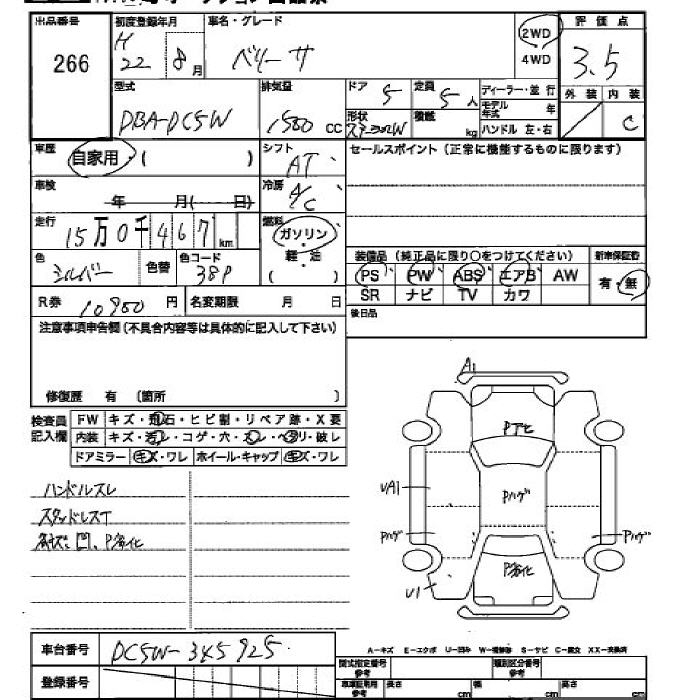 出品番号
266
初度登録年月
H 22 8月
車名・グレード
ベリーサ
2WD
4WD
評価点
3.5
外装 内装
C
型式
DBA-DC5W
排気量
1500 CC
ドア
5
定員
5人
形状
積載
kg
ディーラー・並行
モデル年式 年
ハンドル 左・右
車歴
自家用・( )
シフト
AT
セールスポイント(正常に機能するものに限ります)
車検
年 月( 日)
冷房
A/C
走行
15万0千467km
燃料
ガソリン・
軽・油
( )
色
シルバー
色替
色コード
38P
装備品(純正品に限り○をつけてください)
PS PW ABS エアB AW
SR ナビ TV カワ
新車保証書
有・無
R券 10900円
名変期限 月 日
後日品
注意事項申告欄(不具合内容等は具体的に記入して下さい)
修復歴 有 (箇所 )
検査員
記入欄
FW キズ・飛石・ヒビ割・リペア跡・X要
内装 キズ・汚レ・コゲ・穴・スレ・ヘタリ・破レ
ドアミラー キズ・ワレ ホイール・キャップ キズ・ワレ
ハンドルスレ
スタッドレスT
各キズ、凹、P劣化
A1
Pアセ
UA1
Pハゲ
Pハゲ
Pハゲ
P劣化
U1
車台番号
DC5W-345925
登録番号
A-キズ E-エクボ U-凹み W-補修跡 S-サビ C-腐食 XX-交換済
型式指定番号
参考
類別区分番号
参考
車庫証明用
参考
長さ cm
幅 cm
高さ cm